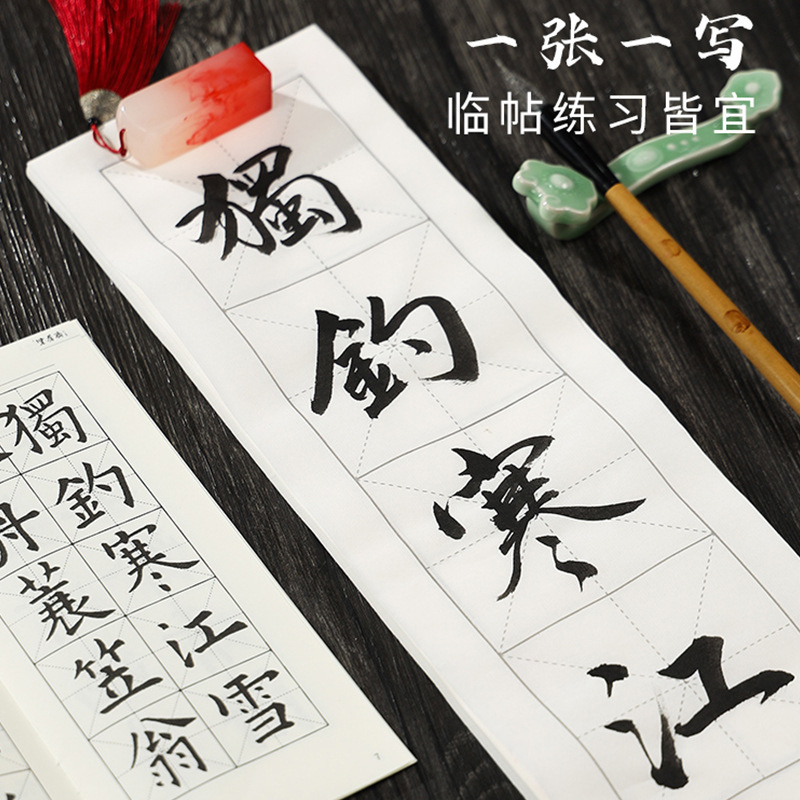 一张一写
临帖练习皆宜
獨釣寒江
獨釣寒江雪
舟蓑笠翁
7